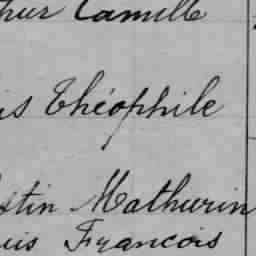 hur Camille
is Théophile
stin Mathurin
uis Francois